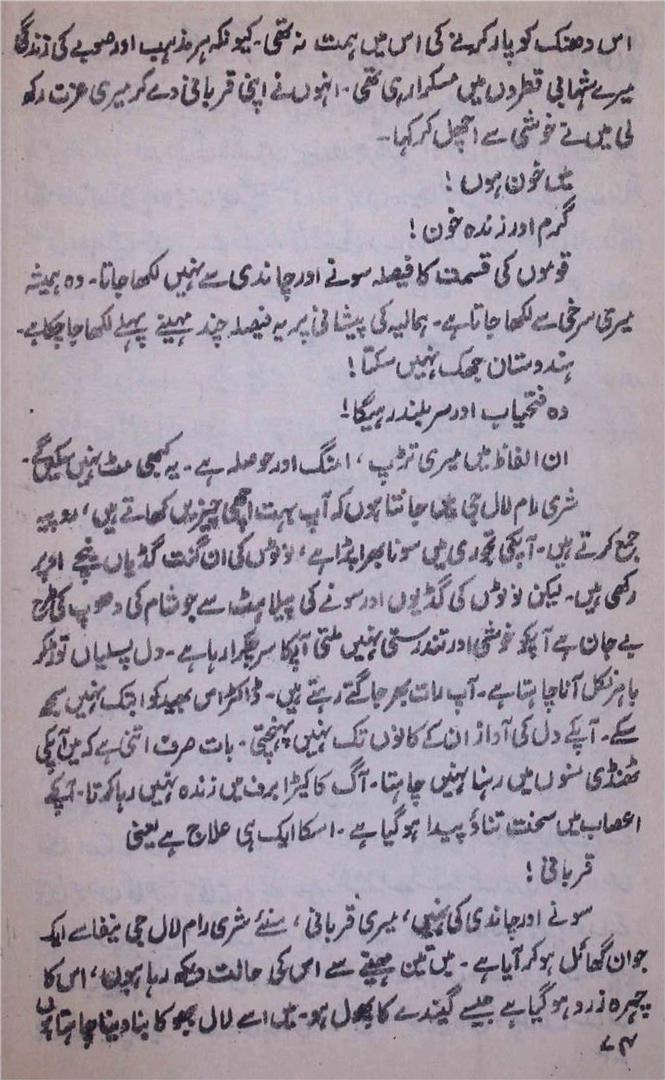 اس دھنک کو پار کرنے کی اس میں ہمت نہ تھی۔ کیونکہ ہر مذہب اور صوبے کی زندگی
میرے شہابی قطروں میں مسکرا رہی تھی۔ انہوں نے اپنی قربانی دے کر میری عزت رکھ
لی میں نے خوشی سے اچھل کر کہا۔
میں خون ہوں!
گرم اور زندہ خون!
قوموں کی قسمت کا فیصلہ سونے اور چاندی سے نہیں لکھا جاتا۔ وہ ہمیشہ
میری سرخی سے لکھا جاتا ہے۔ ہمالیہ کی پیشانی پر یہ فیصلہ چند مہینے پہلے لکھا جا چکا ہے۔
ہندوستان جھک نہیں سکتا!
وہ فتحیاب اور سربلند رہیگا!
ان الفاظ میں میری تڑپ، امنگ اور حوصلہ ہے۔ یہ کبھی مٹ نہیں سکیں گے۔
شری رام لال جی میں جانتا ہوں کہ آپ بہت اچھی چیزیں کھاتے ہیں، روپیہ
جمع کرتے ہیں۔ آپکی تجوری میں سونا بھرا پڑا ہے، نوٹوں کی ان گنت گڈیاں نیچے اوپر
رکھی ہیں۔ لیکن نوٹوں کی گڈیوں اور سونے کی پیلاہٹ سے جو شام کی دھوپ کی طرح
بے جان ہے آپکو خوشی اور تندرستی نہیں ملتی آپکا سر چکرا رہا ہے۔ دل پسلیاں توڑ کر
باہر نکل آنا چاہتا ہے۔ آپ رات بھر جاگتے رہتے ہیں۔ ڈاکٹر اس بھید کو ابتک نہیں سمجھ
سکے۔ آپکے دل کی آواز ان کے کانوں تک نہیں پہنچتی۔ بات صرف اتنی ہے کہ میں آپکی
ٹھنڈی نسوں میں رہنا نہیں چاہتا۔ آگ کا کیڑا برف میں زندہ نہیں رہا کرتا۔ آپکے
اعصاب میں سخت تناؤ پیدا ہو گیا ہے۔ اسکا ایک ہی علاج ہے یعنی
قربانی!
سونے اور چاندی کی نہیں، میری قربانی، سنئے شری رام لال جی نیفا سے ایک
جوان گھائل ہو کر آیا ہے۔ میں تین مہینے سے اس کی حالت دیکھ رہا ہوں، اس کا
چہرہ زرد ہو گیا ہے جیسے گیندے کا پھول ہو۔ میں اسے لال بھبوکا بنا دینا چاہتا ہوں
۷۴